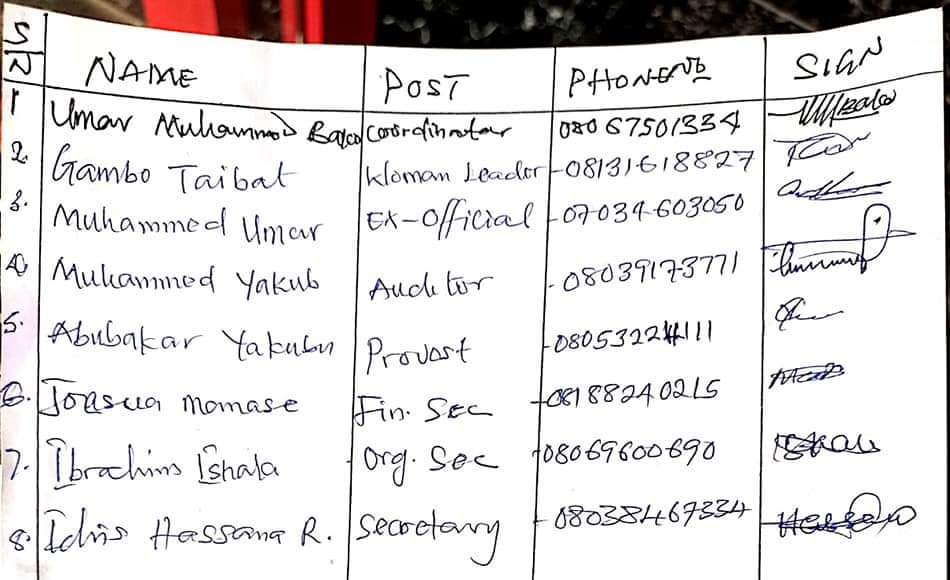 S/N NAME POST PHONE NO SIGN
1 Umar Muhammod Bala Coordinator 08067501334
2. Gambo Taibat Woman Leader - 08131618827
3. Muhammed Umar EX-Official - 07034603050
4. Muhammed Yakub Auditor - 08039173771
5. Abubakar Yakubu Provost - 08053224111
6. Joasua momase Fin. Sec - 08188240215
7. Ibrahim Ishala Org. Sec - 08069600690
8. Idris Hassana R. Secretary - 08038467334